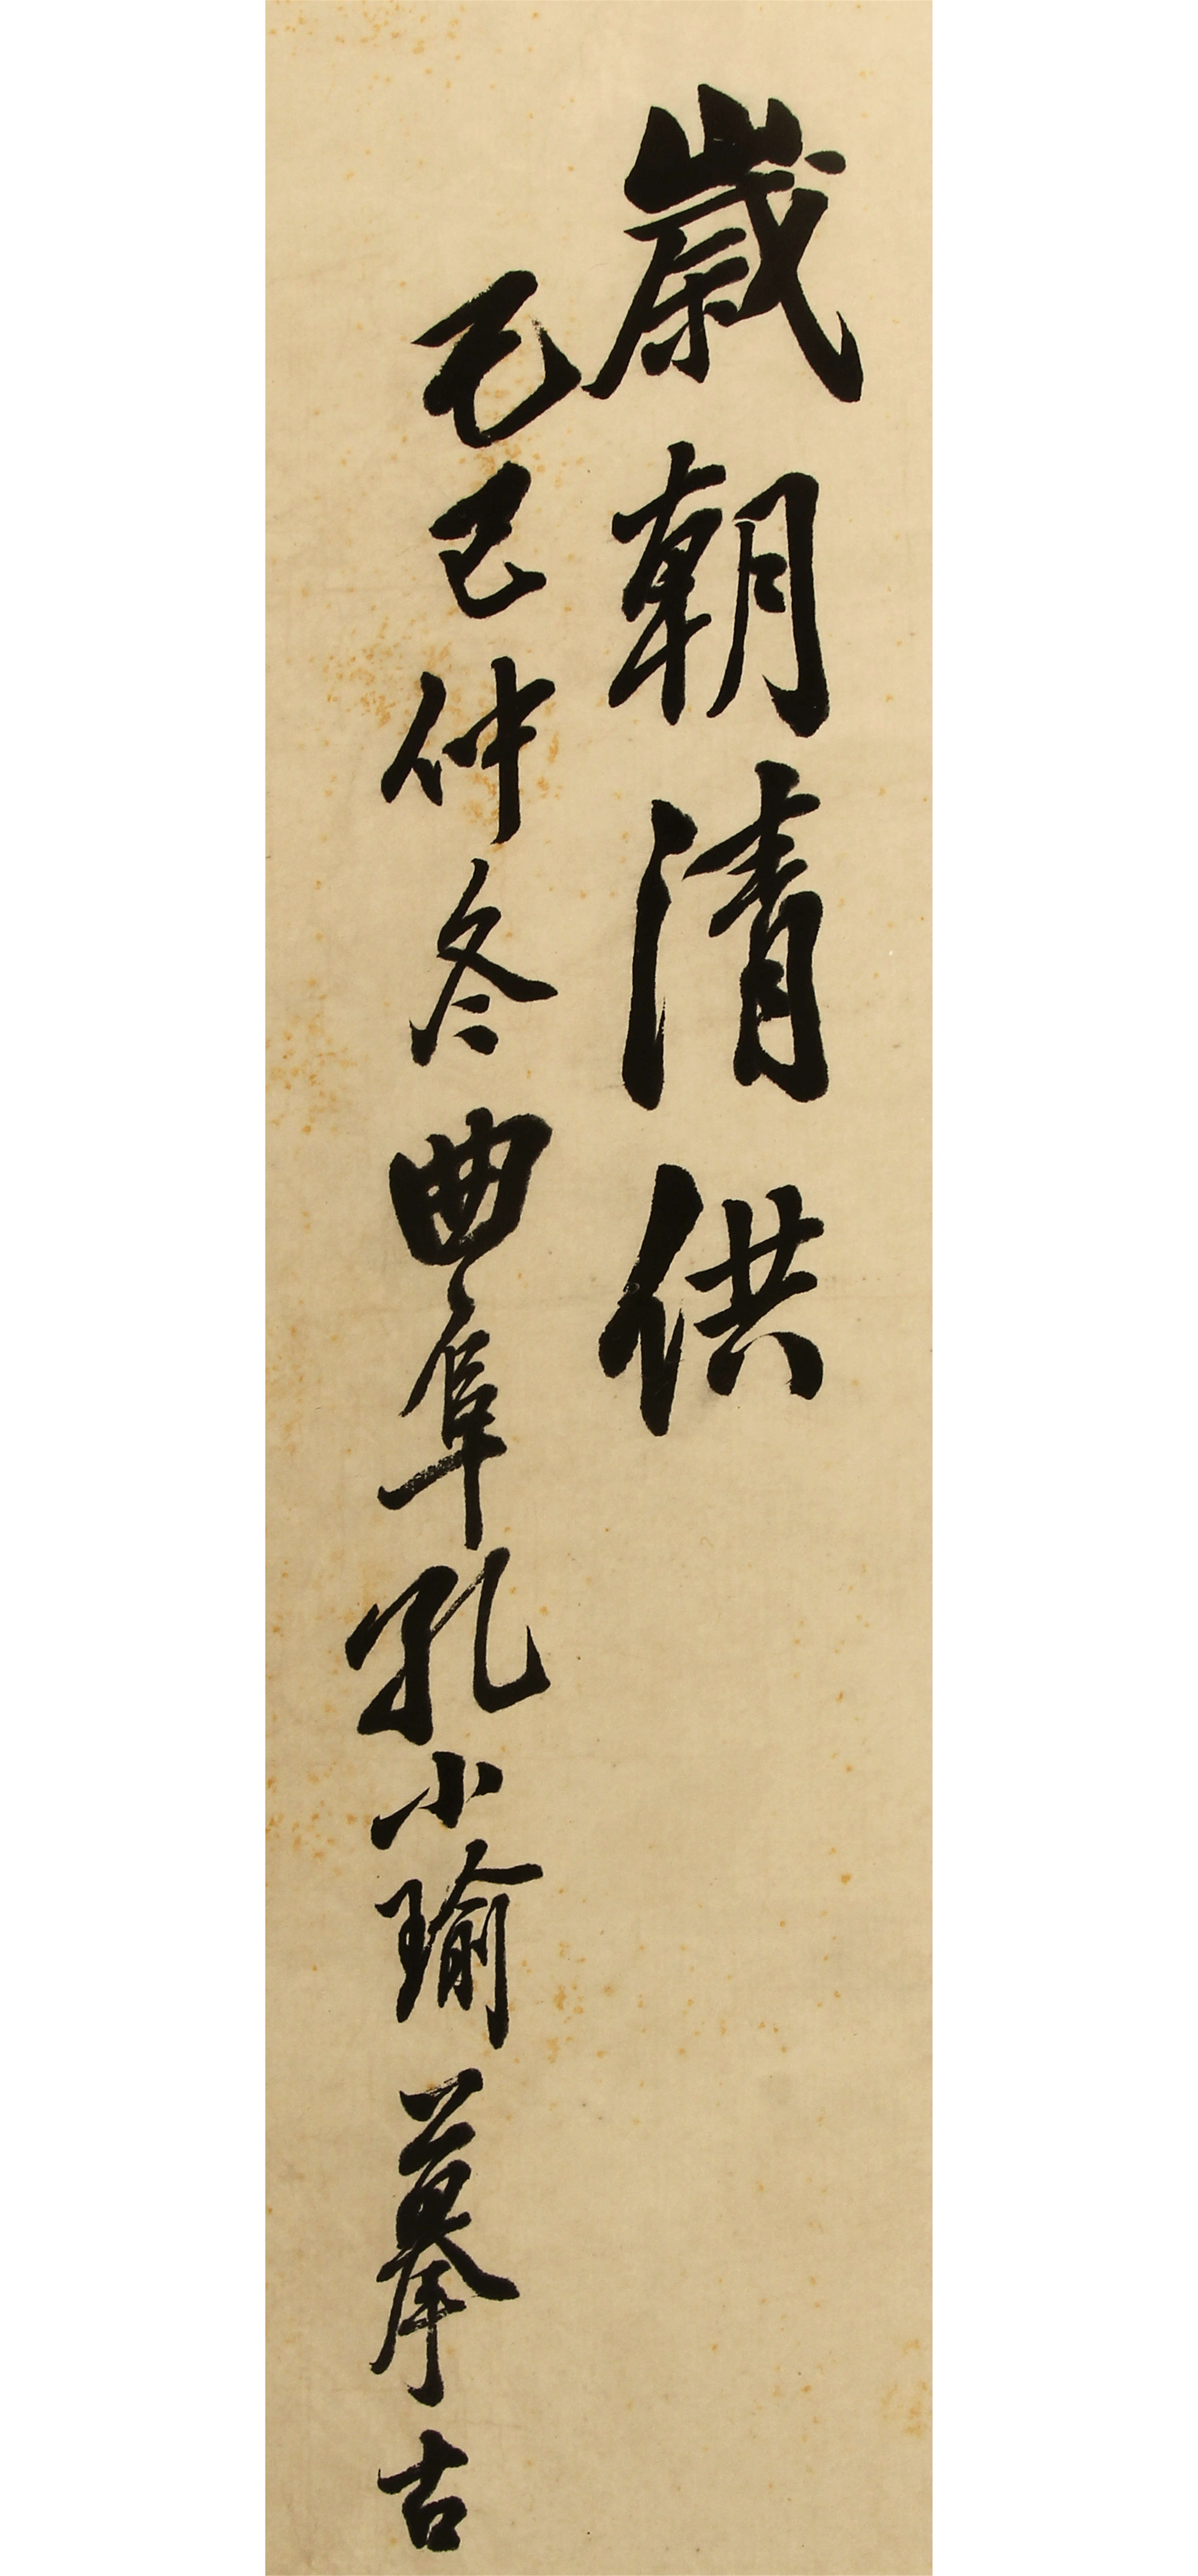 歲朝清供
乙巳仲冬曲阜孔小瑜摹古